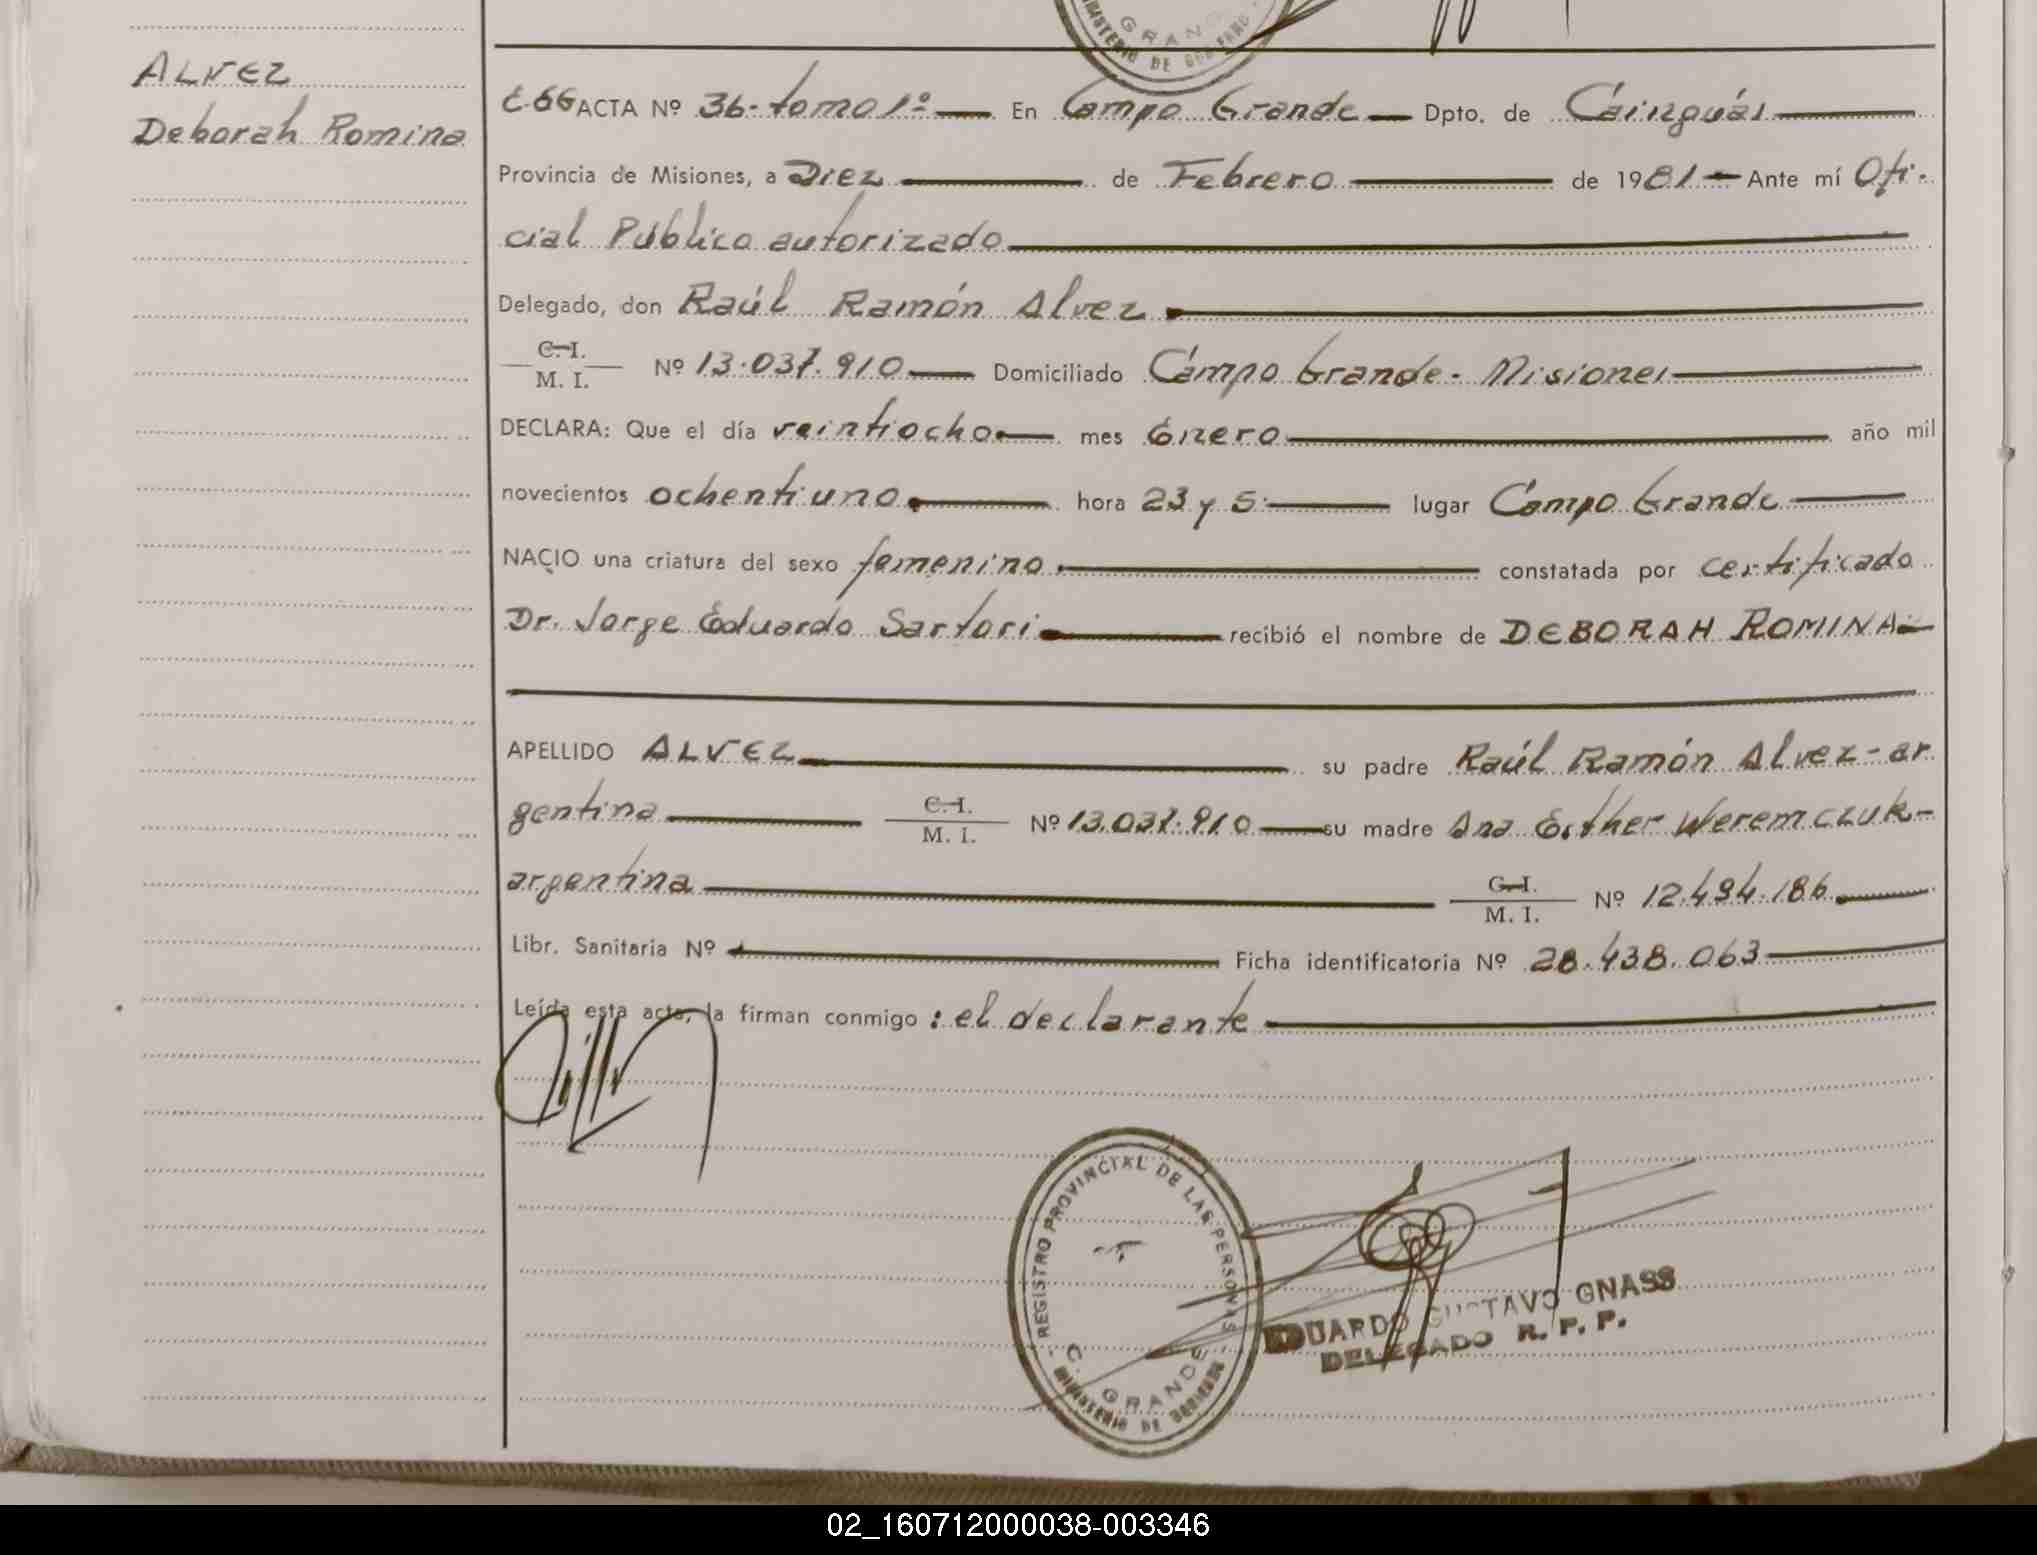 GRAN
MINISTERIO DE GOBIERNO
ALVEZ
Deborah Romina
EGG ACTA Nº 36- tomo 1º — En Campo Grande — Dpto. de Cainguás —
Provincia de Misiones, a Diez — de Febrero — de 1981 — Ante mí Ofi-
cial Público autorizado —
Delegado, don Raúl Ramón Alvez —
C. I.
M. I. Nº 13.037.910 — Domiciliado Campo Grande - Misiones —
DECLARA: Que el día veintiocho — mes Enero — año mil
novecientos ochentiuno — hora 23 y 5 — lugar Campo Grande —
NACIO una criatura del sexo femenino — constatada por certificado
Dr. Jorge Eduardo Sartori — recibió el nombre de DEBORAH ROMINA —
APELLIDO ALVEZ — su padre Raúl Ramón Alvez - ar
gentina — C. I. M. I. Nº 13.037.910 — su madre Ana Esther Weremczuk -
argentina — C. I. M. I. Nº 12.494.186 —
Libr. Sanitaria Nº — Ficha identificatoria Nº 28.438.063 —
Leída esta acta, la firman conmigo : el declarante —
REGISTRO PROVINCIAL DE LAS PERSONAS
C. GRANDE
MINISTERIO DE GOBIERNO
EDUARDO GUSTAVO GNASS
DELEGADO R. P. P.
02_160712000038-003346